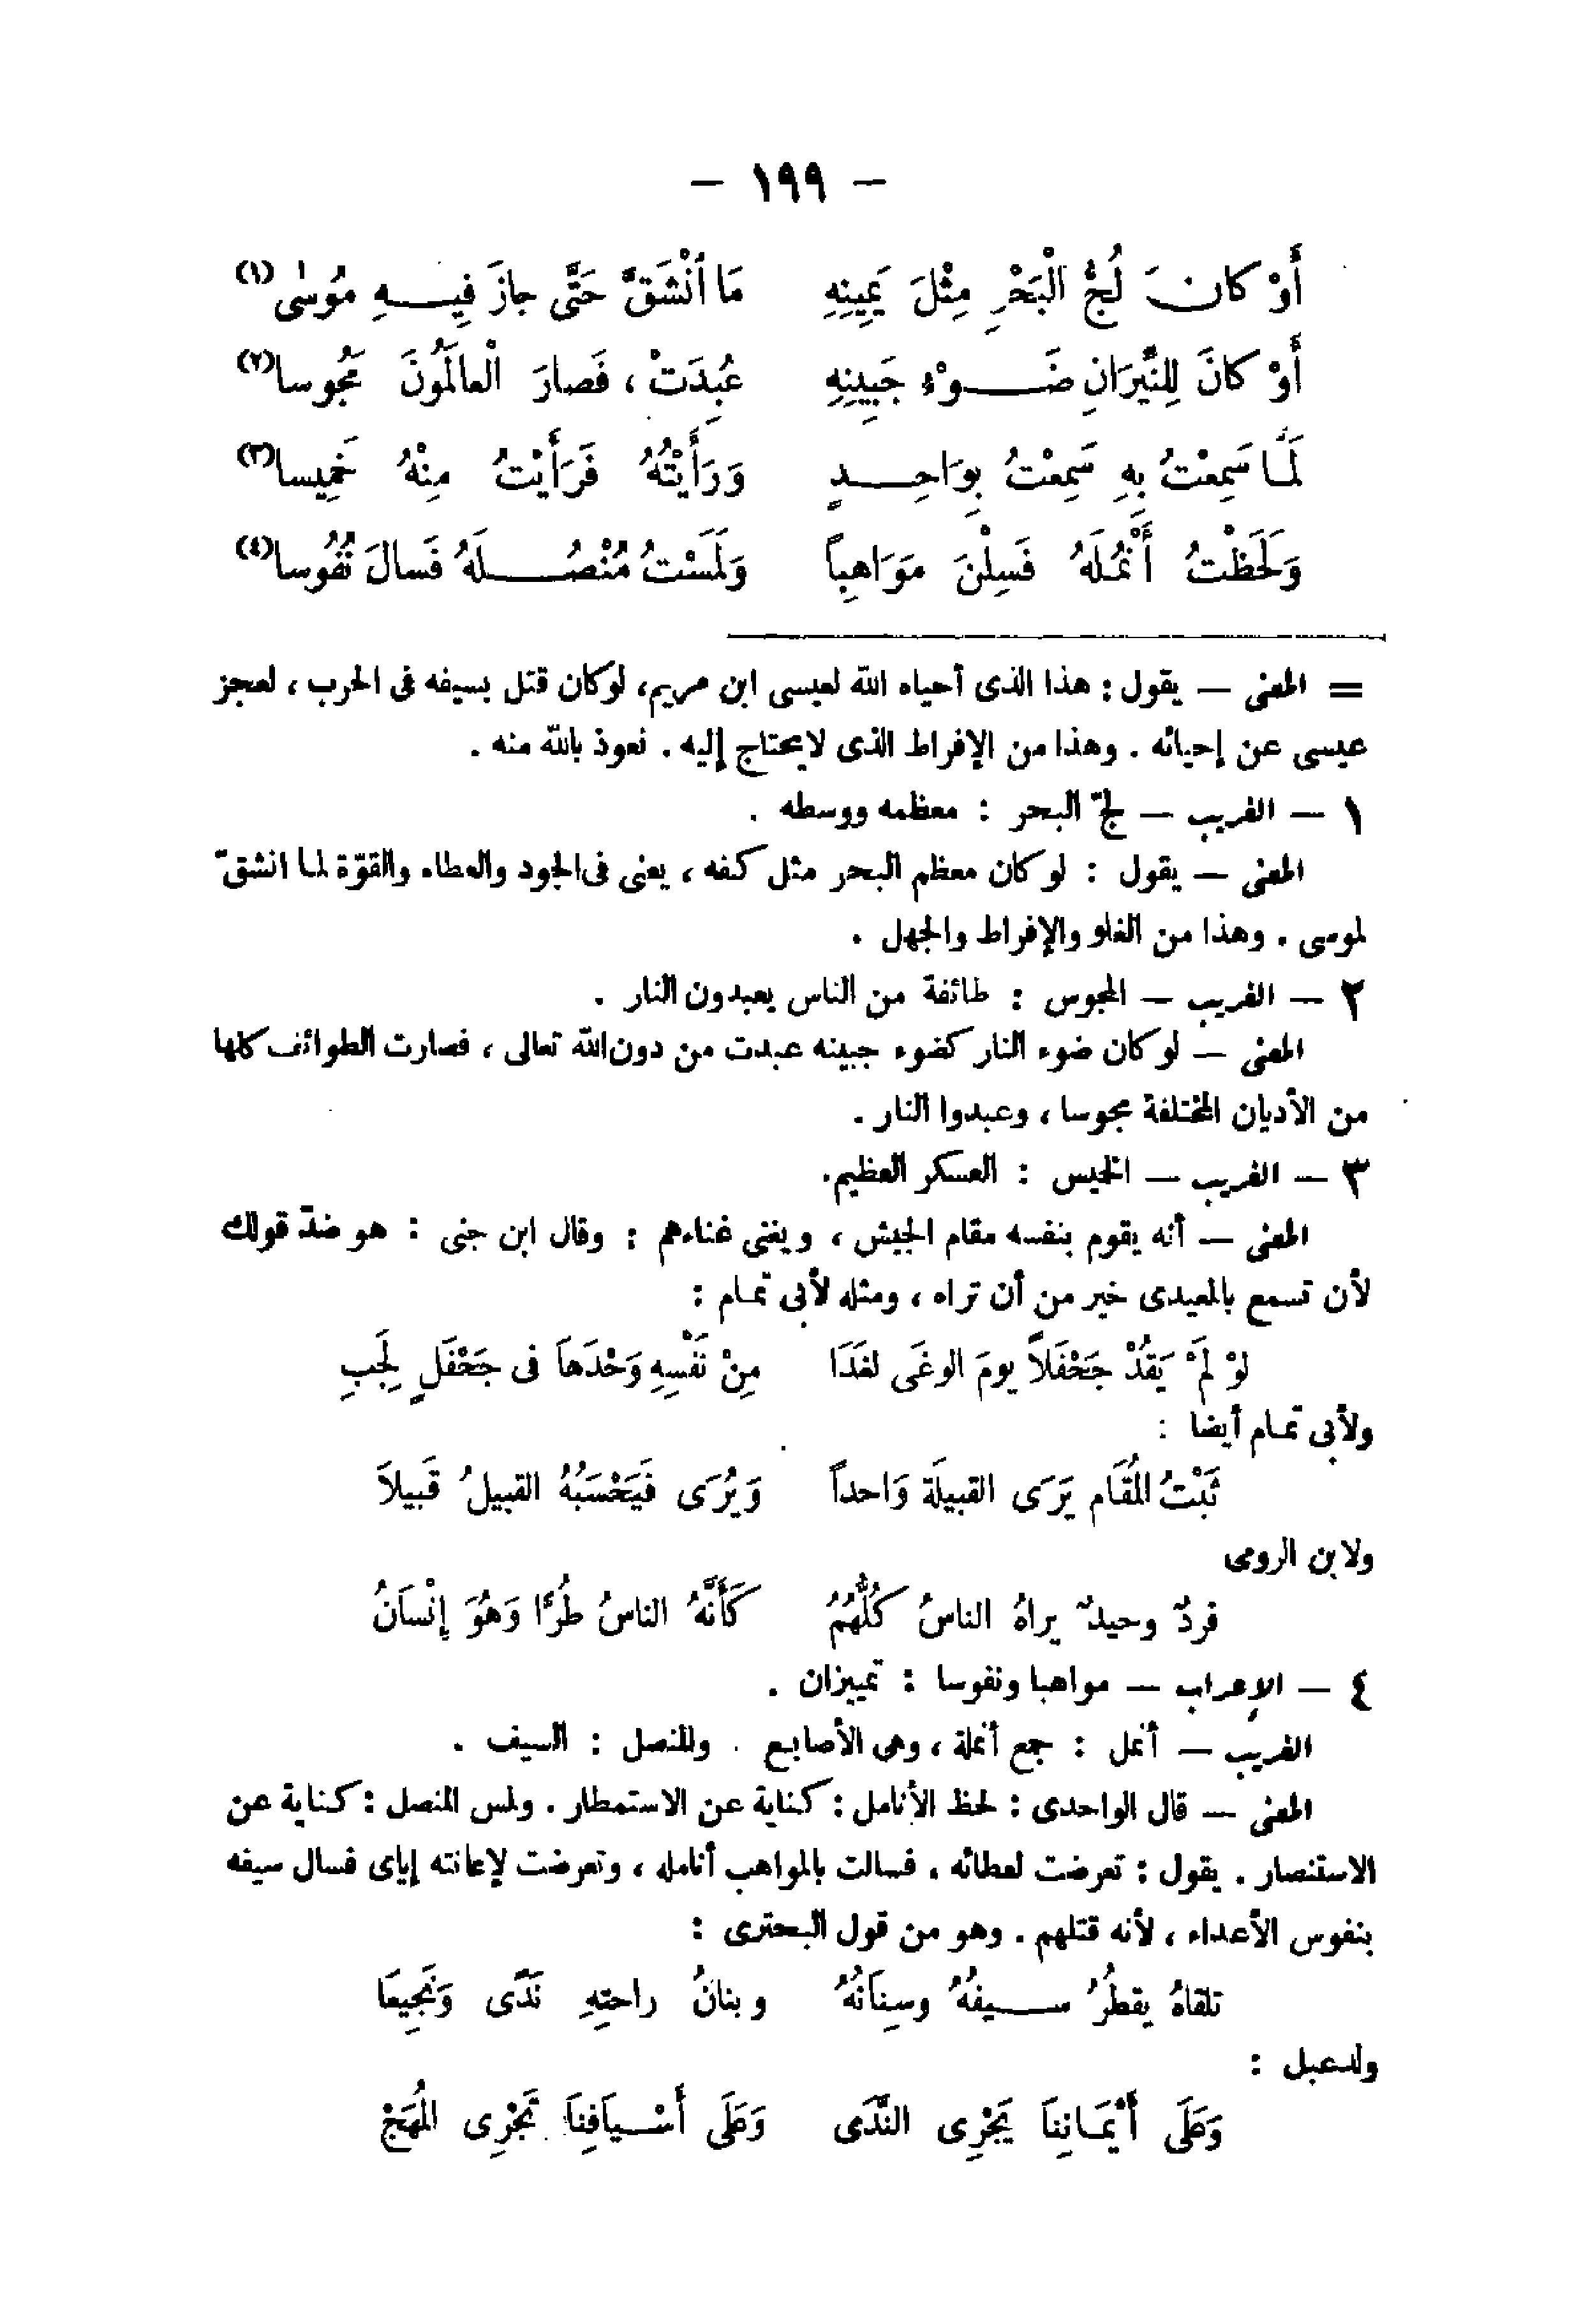 — ١٩٩ —
أَوْ كانَ لُجُّ الْبَحْرِ مِثْلَ يَمِينِهِ مَا ٱنْشَقَّ حَتَّى جازَ فِيهِ مُوسٰى (١)
أَوْ كانَ لِلنِّيرَانِ ضَوْءُ جَبِينِهِ عُبِدَتْ ، فَصارَ الْعالَمُونَ مَجُوسا (٢)
لَمَّا سَمِعْتُ بِهِ سَمِعْتُ بِوَاحِدٍ وَرَأَيْتُهُ فَرَأَيْتُ مِنْهُ خَمِيسا (٣)
وَلَحَظْتُ أَنْمُلَهُ فَسِلْنَ مَوَاهِباً وَلَمَسْتُ مُنْصُلَهُ فَسالَ نُفُوسا (٤)
= المعنى — يقول : هذا الذى أحياه الله لعيسى ابن مريم، لوكان قتل بسيفه فى الحرب ، لعجز
عيسى عن إحيائه . وهذا من الإفراط الذى لا يحتاج إليه . نعوذ بالله منه .
١ — الغريب — لجّ البحر : معظمه ووسطه .
المعنى — يقول : لو كان معظم البحر مثل كفه ، يعنى فى الجود والعطاء والقوّة لما انشقّ
لموسى . وهذا من الغلو والإفراط والجهل .
٢ — الغريب — المجوس : طائفة من الناس يعبدون النار .
المعنى — لو كان ضوء النار كضوء جبينه عبدت من دون الله تعالى ، فصارت الطوائف كلها
من الأديان المختلفة مجوسا ، وعبدوا النار .
٣ — الغريب — الخميس : العسكر العظيم.
المعنى — أنه يقوم بنفسه مقام الجيش ، ويغنى غناءهم : وقال ابن جنى : هو ضدّ قولك
لأن تسمع بالمعيدى خير من أن تراه ، ومثله لأبى تمام :
لوْ لَمْ يَقُدْ جَحْفَلاً يومَ الوغَى لغَدَا مِنْ نَفْسِهِ وَحْدَهاَ فى جَحْفَلٍ لَجِبِ
ولأبى تمام أيضا :
ثَبْتُ المُقَام يَرَى القبيلَة وَاحداً وَيُرَى فَيَحْسَبُهُ القبيلُ قَبيلاَ
ولابن الرومى
فردٌ وحيدٌ يراهُ الناسُ كُلُّهُمُ كَأَنَّهُ الناسُ طُرًّا وَهُوَ إِنْسَانُ
٤ — الإعراب — مواهبا ونفوسا : تمييزان .
الغريب — أنمل : جمع أنملة ، وهى الأصابع . والمنصل : السيف .
المعنى — قال الواحدى : لحظ الأنامل : كناية عن الاستمطار . ولمس المنصل : كناية عن
الاستنصار . يقول : تعرضت لعطائه . فسالت بالمواهب أنامله ، وتعرضت لإعانته إياى فسال سيفه
بنفوس الأعداء ، لأنه قتلهم . وهو من قول البحترى :
تلقاهُ يقطُرُ سيفُهُ وسِنَانُهُ وبنانُ راحتِهِ نَدًى وَنَجِيعَا
ولدعبل :
وَعَلَى أَيْمَانِنَا يَجْرِى النَّدَى وَعَلَى أَسْيَافِنَا تَجْرِى المُهَجْ